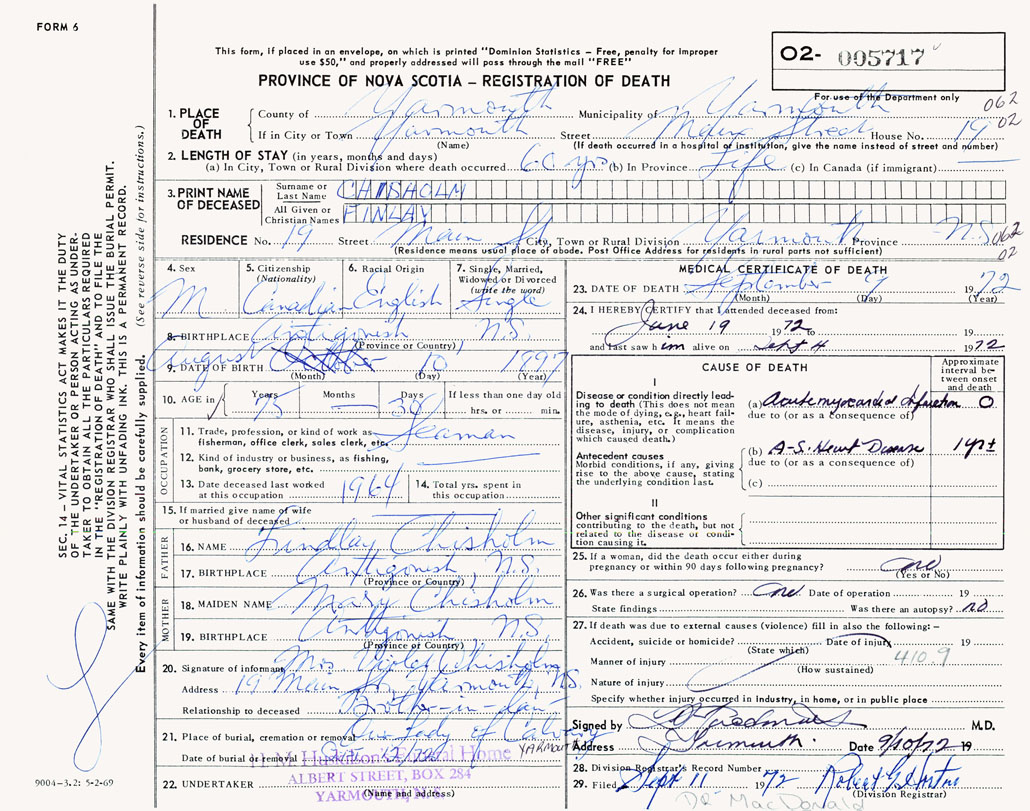 FORM 6
This form, if placed in an envelope, on which is printed "Dominion Statistics – Free, penalty for improper
use $50," and properly addressed will pass through the mail "FREE"
PROVINCE OF NOVA SCOTIA – REGISTRATION OF DEATH
O2- 005717
For use of the Department only
062
02
1. PLACE OF DEATH
County of Yarmouth Municipality of Yarmouth
If in City or Town Yarmouth Street Main Street House No. 19
(Name) (If death occurred in a hospital or institution, give the name instead of street and number)
2. LENGTH OF STAY (in years, months and days)
(a) In City, Town or Rural Division where death occurred 60 yrs (b) In Province Life (c) In Canada (if immigrant)
3. PRINT NAME OF DECEASED
Surname or Last Name CHISHOLM
All Given or Christian Names FINLAY
RESIDENCE No. 19 Street Main St City, Town or Rural Division Yarmouth Province N.S.
(Residence means usual place of abode. Post Office Address for residents in rural parts not sufficient)
062
02
4. Sex M
5. Citizenship (Nationality) Canadian
6. Racial Origin English
7. Single, Married, Widowed or Divorced (write the word) Single
8. BIRTHPLACE Antigonish N.S.
(Province or Country)
9. DATE OF BIRTH August 10 1897
(Month) (Day) (Year)
10. AGE in Years 75 Months — Days 30 If less than one day old hrs. or min.
OCCUPATION
11. Trade, profession or kind of work as fisherman, office clerk, sales clerk, etc. Seaman
12. Kind of industry or business, as fishing, bank, grocery store, etc.
13. Date deceased last worked at this occupation 1964
14. Total yrs. spent in this occupation
15. If married give name of wife or husband of deceased
FATHER
16. NAME Findlay Chisholm
17. BIRTHPLACE Antigonish N.S.
(Province or Country)
MOTHER
18. MAIDEN NAME Mary Chisholm
19. BIRTHPLACE Antigonish N.S.
(Province or Country)
20. Signature of informant Mrs Violet Chisholm
Address 19 Main St. Yarmouth, N.S.
Relationship to deceased Brother-in-law
21. Place of burial, cremation or removal Our Lady of Calvary
YARMOUTH
Date of burial or removal
Funeral Home
ALBERT STREET, BOX 284
YARMOUTH, N.S.
22. UNDERTAKER
(Name and address)
MEDICAL CERTIFICATE OF DEATH
23. DATE OF DEATH September 7 1972
(Month) (Day) (Year)
24. I HEREBY CERTIFY that I attended deceased from:
June 19 1972 to 19
and last saw him alive on Sept 4 1972
CAUSE OF DEATH
Approximate interval between onset and death
I
Disease or condition directly leading to death (This does not mean the mode of dying, e.g., heart failure, asthenia, etc. It means the disease, injury, or complication which caused death.)
(a) Acute myocardial infarction O
due to (or as a consequence of)
Antecedent causes
Morbid conditions, if any, giving rise to the above cause, stating the underlying condition last.
(b) A-S. Heart Disease 1 yr±
due to (or as a consequence of)
(c)
II
Other significant conditions contributing to the death, but not related to the disease or condition causing it.
25. If a woman, did the death occur either during pregnancy or within 90 days following pregnancy?
(Yes or No)
26. Was there a surgical operation? Date of operation 19
State findings Was there an autopsy? no
27. If death was due to external causes (violence) fill in also the following: –
Accident, suicide or homicide? Date of injury 19
(State which)
410.9
Manner of injury
(How sustained)
Nature of injury
Specify whether injury occurred in industry, in home, or in public place
Signed by M.D.
Address Date 9/10/72 19
28. Division Registrar's Record Number
29. Filed Sept 11 1972
(Division Registrar)
Dr MacDonald
SEC. 14 – VITAL STATISTICS ACT MAKES IT THE DUTY
OF THE UNDERTAKER OR PERSON ACTING AS UNDER-
TAKER TO OBTAIN ALL THE PARTICULARS REQUIRED
IN THE "REGISTRATION OF DEATH" AND TO FILE THE
SAME WITH THE DIVISION REGISTRAR WHO SHALL ISSUE THE BURIAL PERMIT.
WRITE PLAINLY WITH UNFADING INK. THIS IS A PERMANENT RECORD.
Every item of information should be carefully supplied. (See reverse side for instructions.)
9004–3.2: 5-2-69